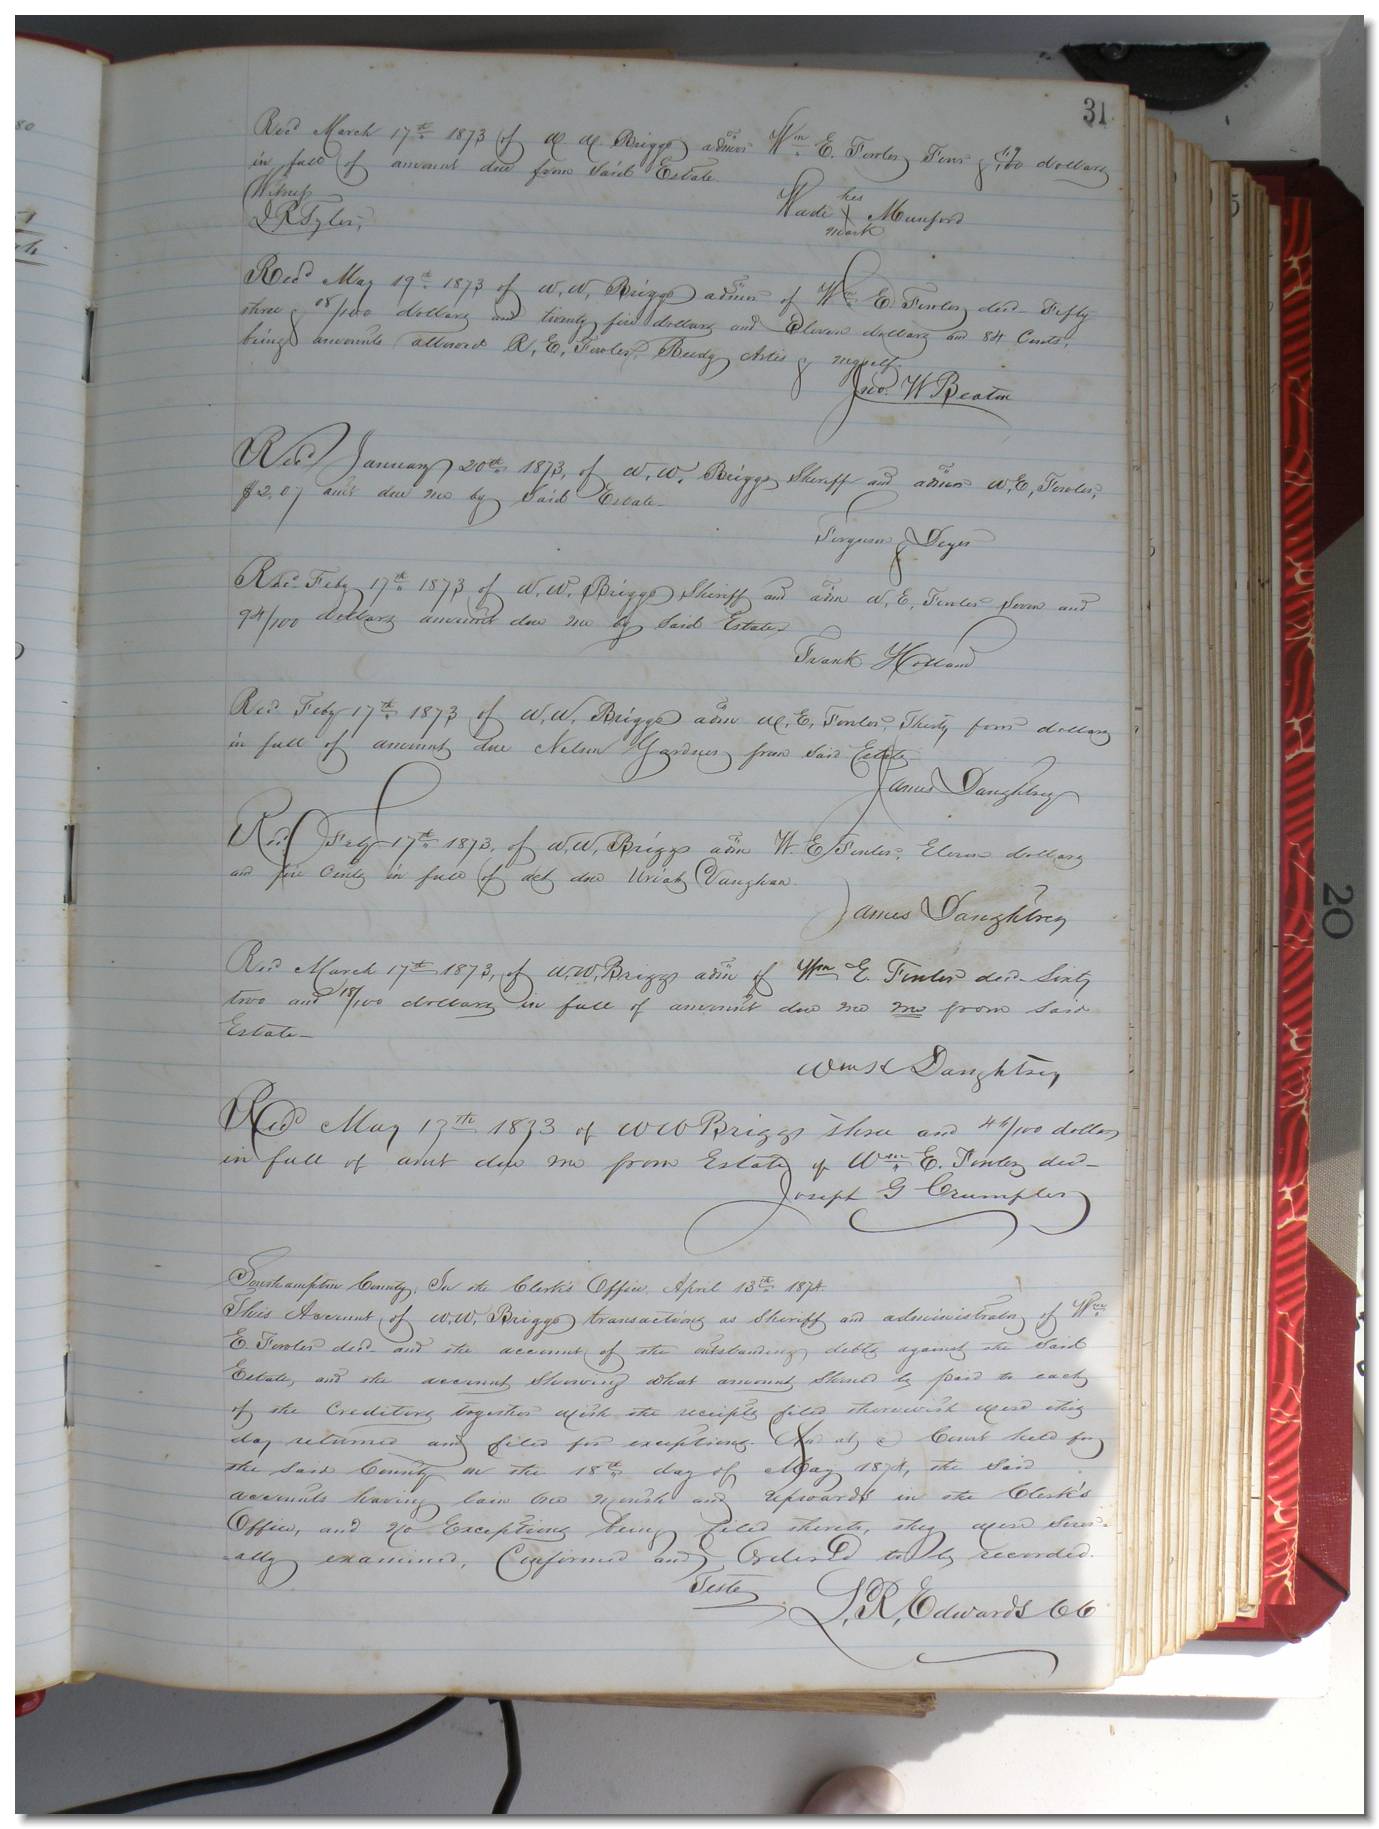 31
Recd March 17th 1873 of W W Briggs admor Wm E. Fowler Four & /100 dollars
in full of amount due from Said Estate
Witness his
J R Tyler, Wade X Munford
mark
Recd May 19th 1873 of W. W. Briggs admor of Wm E. Fowler decd Fifty
three & 08/100 dollars and twenty five dollars and Eleven dollars and 84 Cents,
being amounts allowed R. E. Fowler, Artis & myself.
Jno. W Beaton
Recd January 20th 1873, of W. W. Briggs Sheriff and admor W. E. Fowler,
$2.07 amt due me by Said Estate
Ferguson &
Recd Feby 17th 1873 of W. W. Briggs Sheriff and adm W. E. Fowler Seven and
94/100 dollars amount due me by Said Estate
Frank Holland
Recd Feby 17th 1873 of W. W. Briggs adm W. E. Fowler, Thirty four dollars
in full of amount due Nelson Gardner from Said Estate
James Daughtrey
Recd Feby 17th 1873, of W. W. Briggs adm W. E. Fowler, Eleven dollars
and five Cents in full of act due Uriah Vaughan.
James Daughtrey
Recd March 17th 1873, of W. W. Briggs adm of Wm E. Fowler decd Sixty
two and 18/100 dollars in full of amount due me me from Said
Estate
Wm H Daughtrey
Recd May 17th 1873 of W W Briggs three and 46/100 dollars
in full of amt due me from Estate of Wm E. Fowler decd
Joseph G Crumpler
Southampton County; In the Clerk's Office April 13th 1874
This Account of W. W. Briggs transactions as Sheriff and administrator of Wm
E. Fowler decd and the account of the outstanding debts against the Said
Estate, and the account Showing what amount Should be paid to each
of the Creditors together with the receipts filed therewith were this
day returned and filed for exceptions. And at a Court held for
the Said County on the 18th day of May 1874, the Said
accounts having lain one month and upwards in the Clerk's
Office, and no Exceptions being filed thereto, they were Sever-
ally examined, Confirmed and Ordered to be recorded.
Teste
L. R. Edwards CC
20